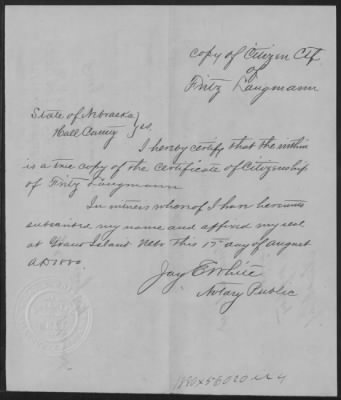 Copy of Citizen Ctf.
of
Fritz Langmann
State of Nebraska
Hall County } ss.
I hereby certify that the within
is a true copy of the Certificate of Citizenship
of Fritz Langmann
In witness whereof I have hereunto
subscribed my name and affixed my seal
at Grand Island Nebr this day of August
Jay E. White
Notary Public